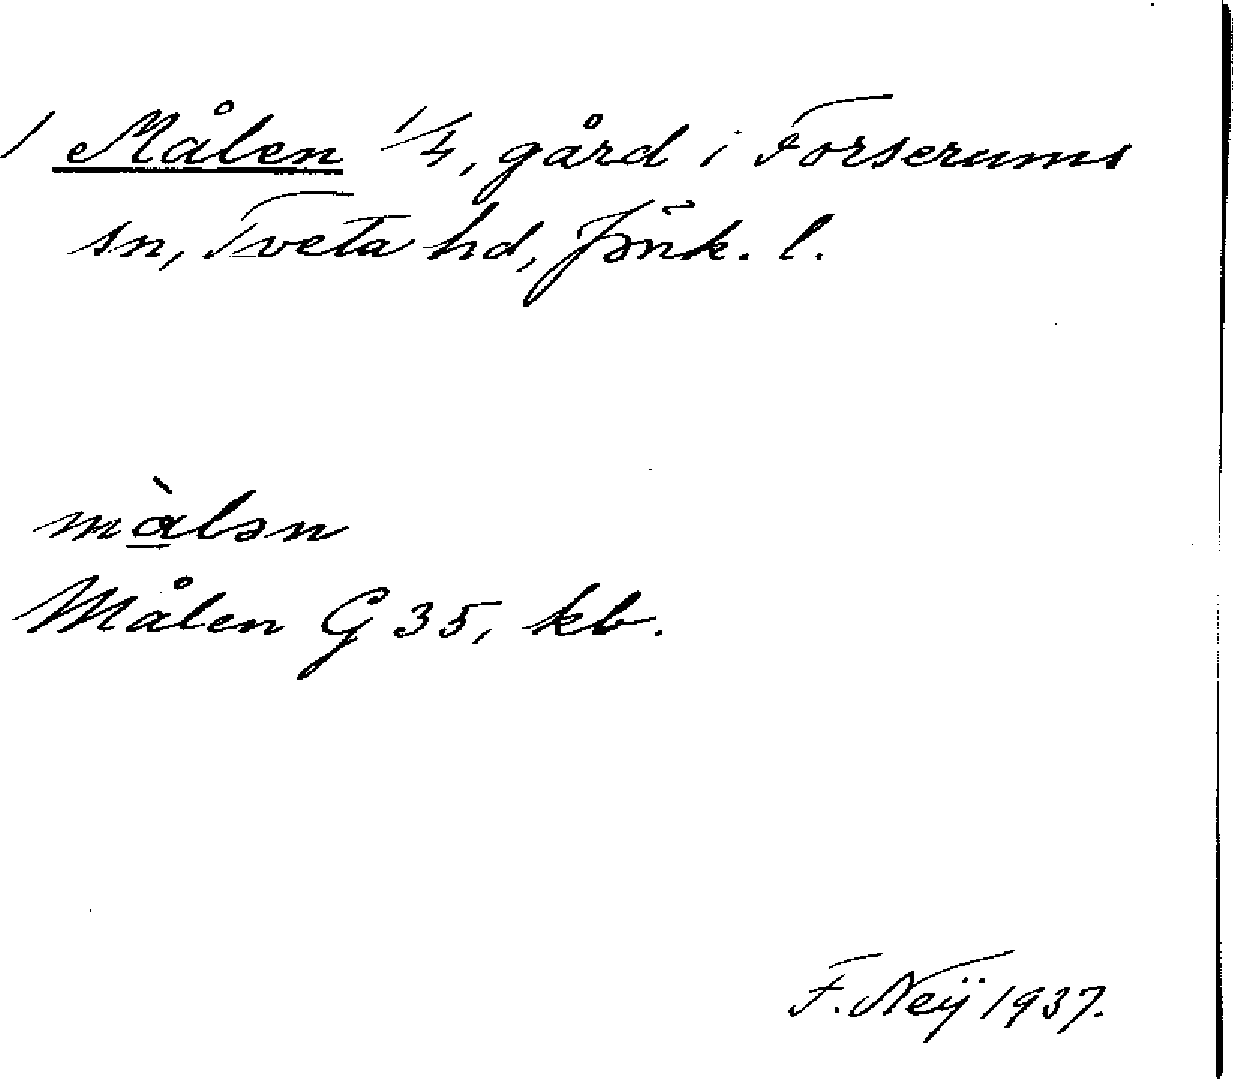 1 Målen 1/4, gård i Forserums
sn, Tveta hd, Jönk. l.
màlən
Målen G 35, kb.
F. Neÿ 1937.